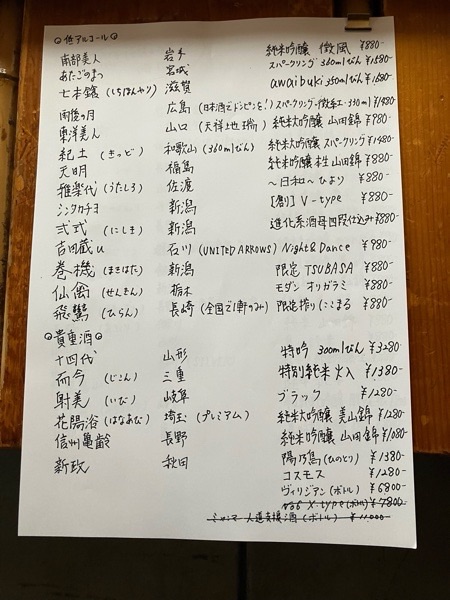 ◎低アルコール◎
南部美人 岩手 純米吟醸 微風 ¥880-
あたごのまつ 宮城 スパークリング 360mlびん ¥1580-
七本鎗(しちほんやり) 滋賀 awaibuki 350mlびん
雨後の月 広島(日本酒でドンピンを!) スパークリング・微系王・330ml ¥1480
東洋美人 山口(天祥地瑞) 純米大吟醸 山田錦 ¥980-
紀土(きっど) 和歌山(360mlびん) 純米大吟醸 スパークリング ¥1480-
天明 福島 純米吟醸 本生 山田錦 ¥880-
雅楽代(うたしろ) 佐渡 〜日和〜 ひより ¥880-
シンタカチヨ 新潟 [創] V-type ¥880-
弌式(にしき) 新潟 進化系酒母四段仕込み ¥880-
吉田蔵u 石川(UNITED ARROWS) Night&Dance ¥980-
巻機(まきはた) 新潟 限定 TSUBASA ¥880-
仙禽(せんきん) 栃木 モダン オリガラミ ¥880-
飛鸞(ひらん) 長崎(全国で1軒のみ) 限定搾り(ここまる ¥880-
◎貴重酒◎
十四代 山形 特吟 300mlびん ¥3280-
而今(じこん) 三重 特別純米 火入 ¥1380-
射美(いび) 岐阜 ブラック ¥1280-
花陽浴(はなあび) 埼玉(プレミアム) 純米大吟醸 美山錦 ¥1280-
信州亀齢 長野 純米吟醸 山田錦 ¥1080-
新政 秋田 陽乃鳥(ひのとり) ¥1380-
コスモス ¥1280-
ヴィリジアン(ボトル) ¥6800-
No6 X-type(ボトル) ¥7800-
人道支援酒(ボトル) ¥11000-